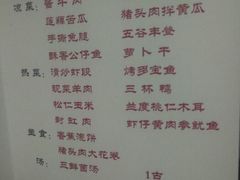 凉菜: 酱牛肉 猪头肉拌黄瓜
莲雾苦瓜 五谷丰登
手撕兔腿 萝卜干
酥香公仔鱼
热菜: 清炒虾段 烤多宝鱼
砚菜羊肉 三杯鸭
松仁玉米 益度桃仁木耳
封缸肉 虾仔黄肉参鱿鱼
主食: 香蕉泡饼
猪头肉大花卷
汤: 三鲜菌汤